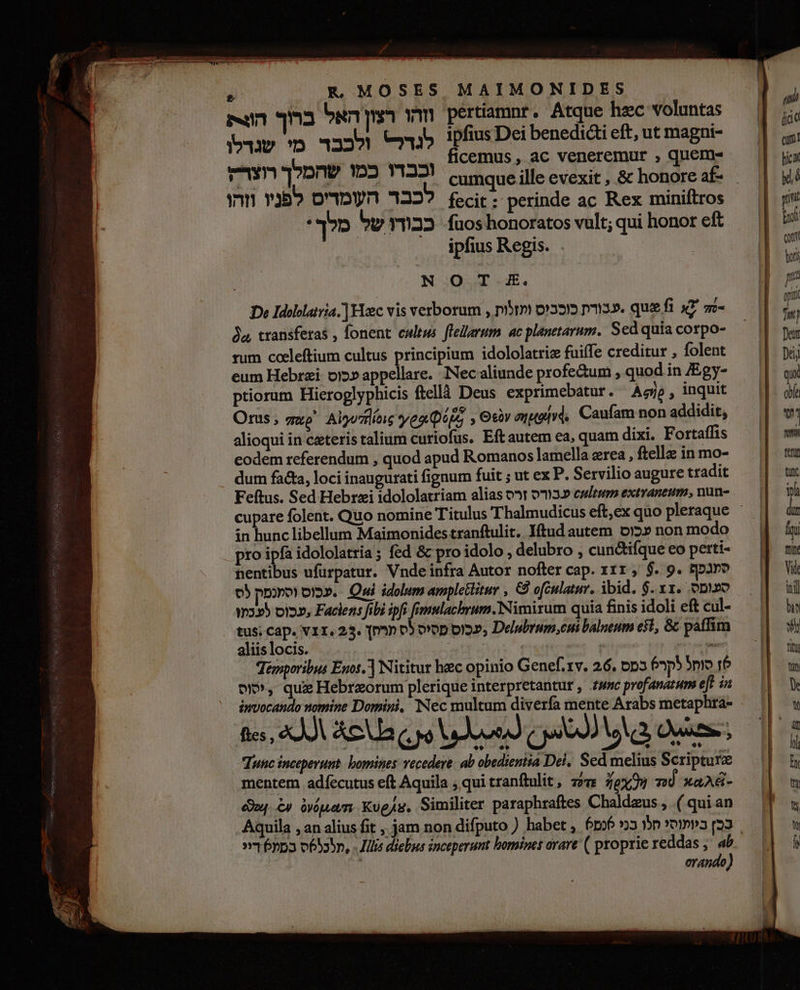 R. MOSES MAIMONIDES
וזהו רצון האל ברוך הוא
לגדל ולכבד מי שגדלו
וכבדו כמו שהמלך רוצה
לכבד העומדים לפניו וזהו
כבודו של מלך׃
pertiamnr. Atque hæc voluntas
ipſius Dei benedicti eſt, ut magni-
ficemus, ac veneremur, quem-
cumque ille evexit, & honore af-
fecit: perinde ac Rex miniſtros
ſuos honoratos vult; qui honor eſt
ipſius Regis.
NOTÆ.
De Idololatria.] Hæc vis verborum, עבודת כוכבים ומזלות. quæ ſi
transferas, ſonent cultus ſtellarum ac planetarum. Sed quia corpo-
rum cœleſtium cultus principium idololatriæ fuiſſe creditur, ſolent
eum Hebræi עכום appellare. Nec aliunde profectum, quod in Ægy-
ptiorum Hieroglyphicis ſtellâ Deus exprimebatur. Ἀστὴρ, inquit
Orus, παρ' Αἰγυπτίοις γραφόμενος, Θεὸν σημαίνει. Cauſam non addidit,
alioqui in cæteris talium curioſus. Eſt autem ea, quam dixi. Fortaſſis
eodem referendum, quod apud Romanos lamella ærea, ſtellæ in mo-
dum facta, loci inaugurati ſignum fuit; ut ex P. Servilio augure tradit
Feſtus. Sed Hebræi idololatriam alias עבודה זרה cultum extraneum, nun-
cupare ſolent. Quo nomine Titulus Thalmudicus eſt, ex quo pleraque
in hunc libellum Maimonides tranſtulit. Iſtud autem עכום non modo
pro ipſa idololatria; ſed & pro idolo, delubro, cunctiſque eo perti-
nentibus uſurpatur. Vnde infra Autor noſter cap. III, §. 9.
Qui idolum amplectitur, & oſculatur. ibid. §. II.
Faciens ſibi ipſi ſimulachrum. Nimirum quia finis idoli eſt cul-
tus. cap. VII. 23. Delubrum, cui balneum eſt, & paſſim
aliis locis.
Temporibus Enos.] Nititur hæc opinio Geneſ. IV. 26. אז הוחל לקרא בשם
quæ Hebræorum plerique interpretantur, tunc profanatum eſt in
invocando nomine Domini. Nec multum diverſa mente Arabs metaphra-
ſtes,
Tunc inceperunt homines recedere ab obedientia Dei. Sed melius Scripturæ
mentem adſecutus eſt Aquila, qui tranſtulit, τότε ἤρχθη τοῦ καλεῖ-
σθαι ἐν ὀνόματι Κυρίου. Similiter paraphraſtes Chaldæus, (qui an
Aquila, an alius ſit, jam non diſputo) habet,
Illis diebus inceperunt homines orare (proprie reddas, ab
orando)